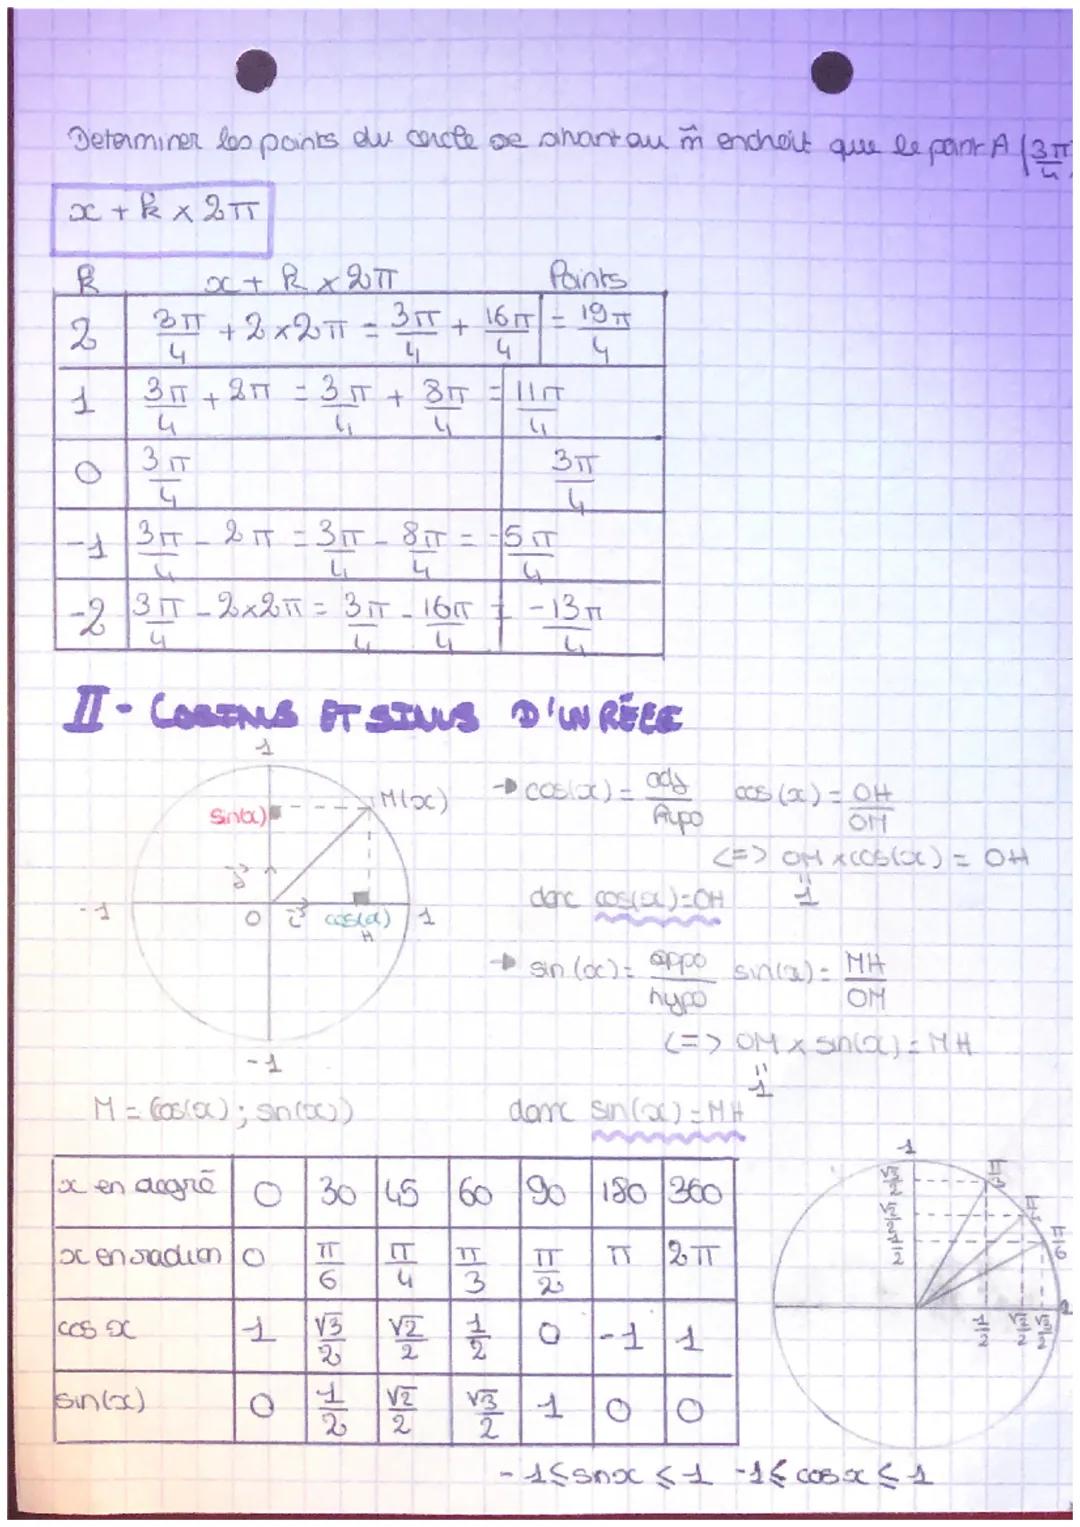 Determiner les points du cercle se situant au m̂ endroit que le point A (3π/4)
x + k × 2π
k x + k × 2π Points
2 3π/4 + 2×2π = 3π/4 + 16π/4 = 19π/4
1 3π/4 + 2π = 3π/4 + 8π/4 = 11π/4
0 3π/4 3π/4
-1 3π/4 - 2π = 3π/4 - 8π/4 = -5π/4
-2 3π/4 - 2×2π = 3π/4 - 16π/4 = -13π/4
II - COSINUS ET SINUS D'UN RÉEL
1
sin(x) M(x)
j
-1 O i cos(x) 1
H
-1
→ cos(x) = adj/hypo cos(x) = OH/OM
<=> OM × cos(x) = OH
donc cos(x) = OH " 1
→ sin(x) = oppo/hypo sin(x) = MH/OM
<=> OM × sin(x) = MH
" 1
M = (cos(x) ; sin(x)) donc sin(x) = MH
x en degré 0 30 45 60 90 180 360
x en radian 0 π/6 π/4 π/3 π/2 π 2π
cos x 1 √3/2 √2/2 1/2 0 -1 1
sin(x) 0 1/2 √2/2 √3/2 1 0 0
1
√3/2 π/3
√2/2 π/4
1/2 π/6
1/2 √2/2 √3/2
-1 ≤ sin x ≤ 1 -1 ≤ cos x ≤ 1